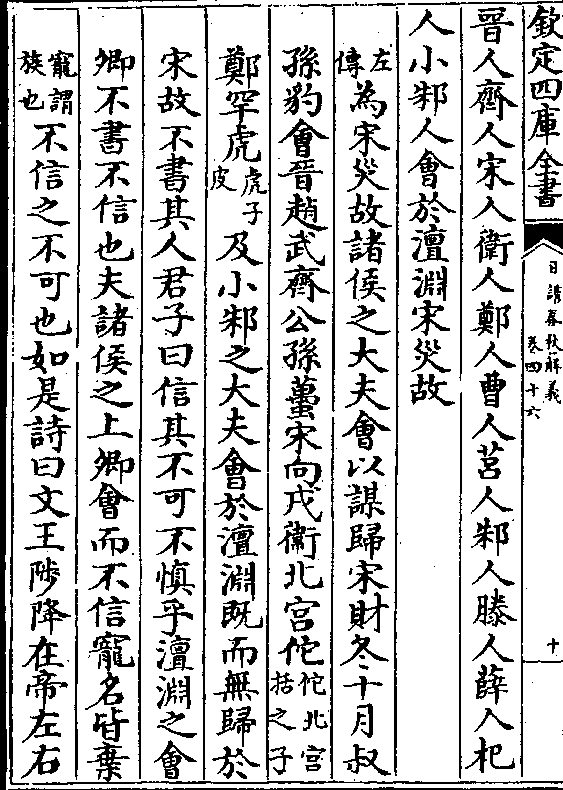 欽定四庫全書
日講春秋解義
卷四十六
十
晉人齊人宋人衛人鄭人曹人莒人邾人滕人薛人杞
人小邾人會於澶淵宋災故
左傳為宋災故諸侯之大夫會以謀歸宋財冬十月叔
孫豹會晉趙武齊公孫蠆宋向戌衞北宮佗佗北宮括之子
鄭罕虎虎子皮及小邾之大夫會於澶淵既而無歸於
宋故不書其人君子曰信其不可不慎乎澶淵之會
卿不書不信也夫諸侯之上卿會而不信寵名皆棄
寵謂族也不信之不可也如是詩曰文王陟降在帝左右